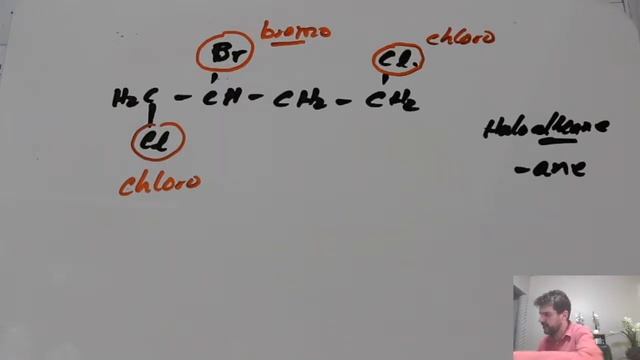 bromo
chloro
Br
Cl.
H2C - CH - CH2 - CH2
Cl
chloro
Haloalkane
-ane